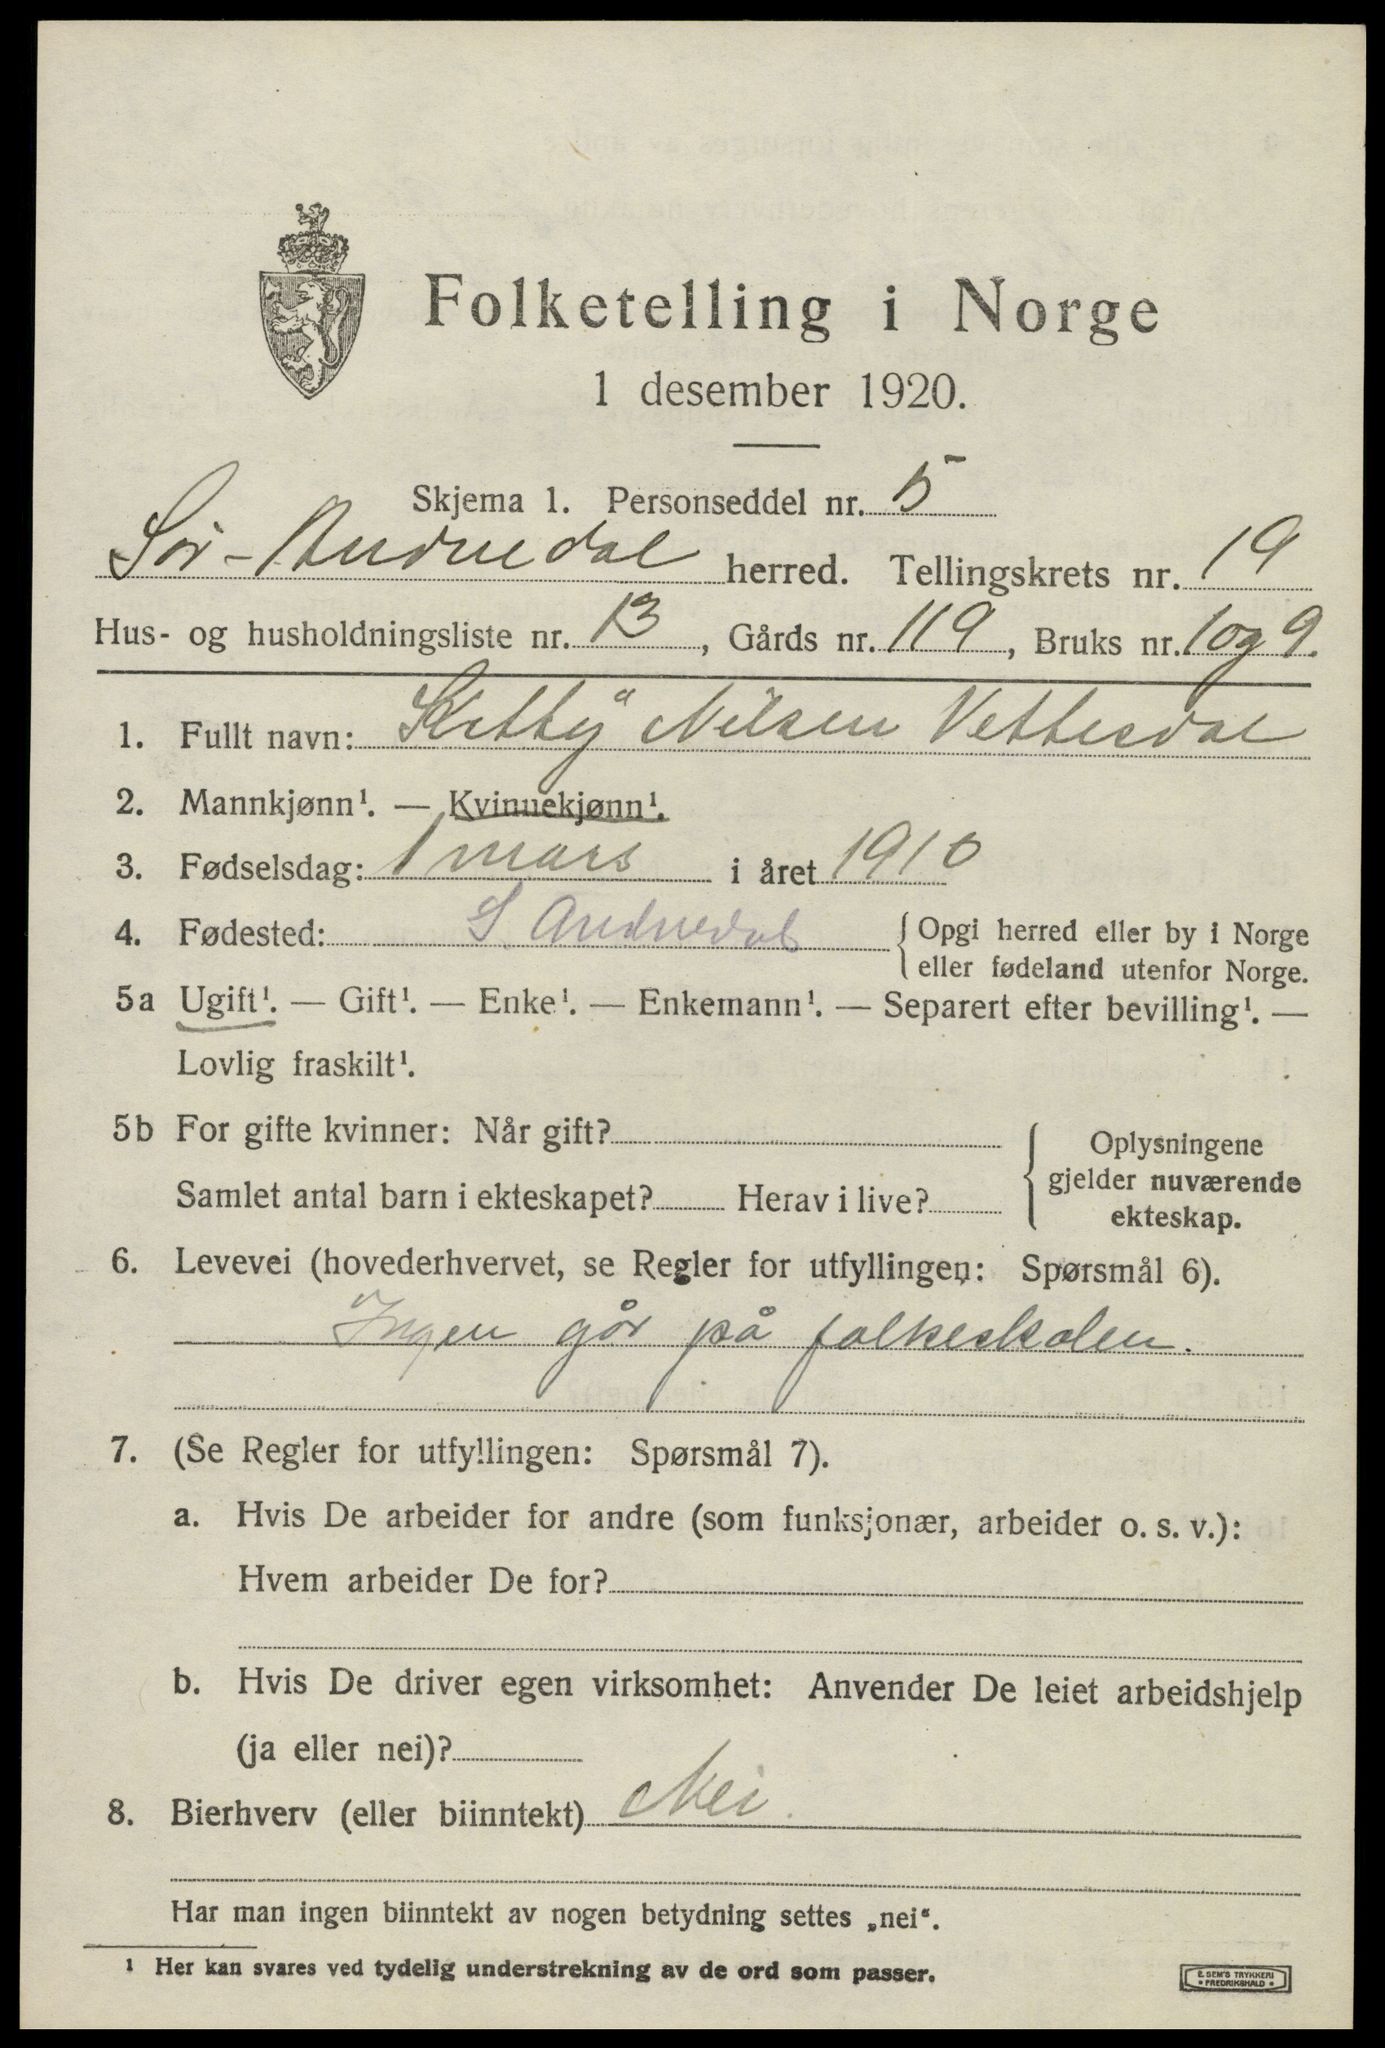 Folketelling i Norge
1 desember 1920.
Skjema 1. Personseddel nr. 5
Sør-Audnedal herred. Tellingskrets nr. 19
Hus- og husholdningsliste nr. 13, Gårds nr. 119, Bruks nr. 1 og 9.
1. Fullt navn: Kitty Nilsen Vettesdal
2. Mannkjønn¹. — Kvinnekjønn¹.
3. Fødselsdag: 1 mars i året 1910
4. Fødested: S. Audnedal { Opgi herred eller by i Norge
eller fødeland utenfor Norge.
5a Ugift¹. — Gift¹. — Enke¹. — Enkemann¹. — Separert efter bevilling¹. —
Lovlig fraskilt¹.
5b For gifte kvinner: Når gift?
Samlet antal barn i ekteskapet? Herav i live?
{ Oplysningene
gjelder nuværende
ekteskap.
6. Levevei (hovederhvervet, se Regler for utfyllingen: Spørsmål 6).
Ingen går på folkeskolen.
7. (Se Regler for utfyllingen: Spørsmål 7).
a. Hvis De arbeider for andre (som funksjonær, arbeider o. s. v.):
Hvem arbeider De for?
b. Hvis De driver egen virksomhet: Anvender De leiet arbeidshjelp
(ja eller nei)?
8. Bierhverv (eller biinntekt) Nei.
Har man ingen biinntekt av nogen betydning settes „nei“.
¹ Her kan svares ved tydelig understrekning av de ord som passer.
E. SEM'S TRYKKERI
• FREDRIKSHALD •